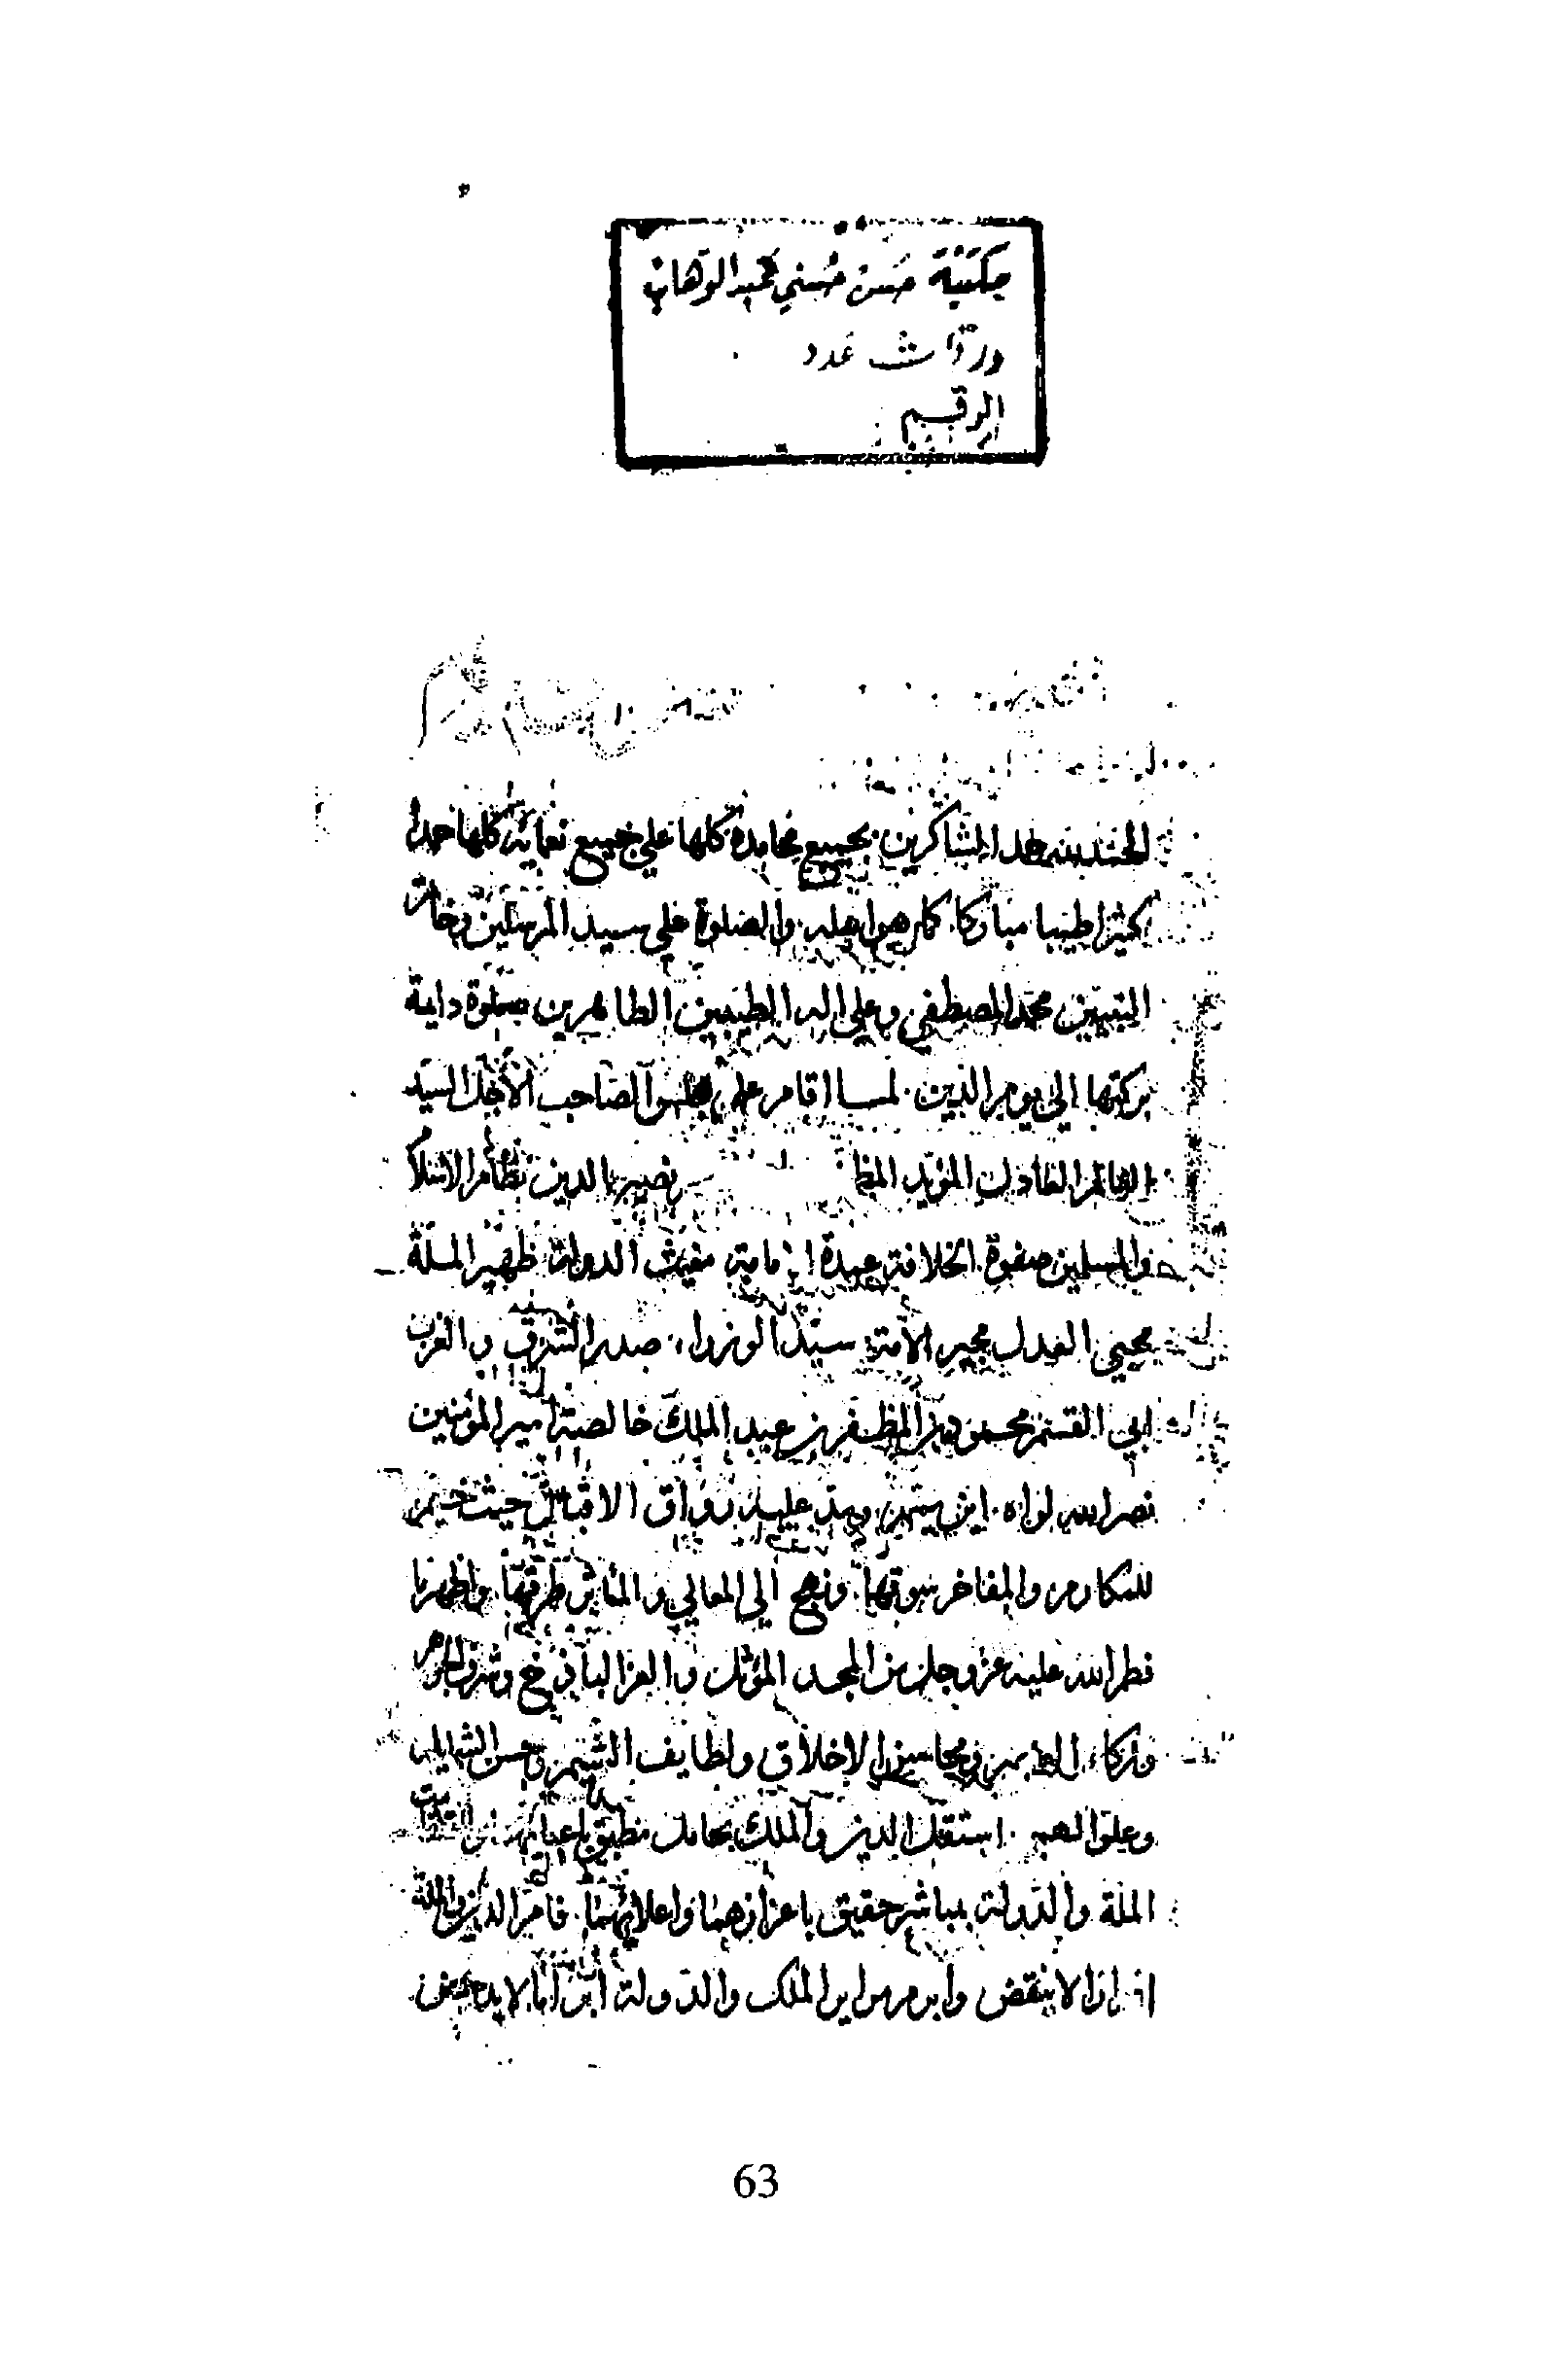 مكتبة حسن حسني عبد الوهاب
عدد
الرقم
الحمد لله حمد الشاكرين بجميع محامده كلها علي جميع نعمائه كلها حمدا
كثيرا طيبا مباركا كما هو اهله والصلوة علي سيد المرسلين وخاتم
النبيين محمد المصطفي وعلي اله الطيبين الطاهرين صلوة دايمة
بركتها الي يوم الدين لما اقام علي الصاحب الأجل السيد
العالم العادل المؤيد المظفر نصير الدين نظام الاسلام
المسلمين صفوة الخلافة عمدة الامامة مغيث الدولة ظهير الملة
محيي العدل مجير الأمة سيد الوزراء صدر الشرق والغرب
ابي القسم محمود بن المظفر بن عبد الملك خالصة امير المؤمنين
نصر الله لواه اين يمم ومد عليه رواق الاقبال حيث خيم
للمكارم والمفاخر سوقها ونهج الي المعالي والمآثر طرقها واظهر ما
فطر الله عليه عز وجل من المجد المؤثل والعز الباذخ وشرف الجوهر
وزكاء ومحاسن الاخلاق ولطايف الشيم وحسن الشمايل
وعلو الهمم استقل الدين والملك بحامل مطيق باعبائهما
الملة والدولة بمباشر حقيق باعزازهما واعلائهما فامر الدين والملة
لا ينقض وابرم الملك والدولة ابراما لا يدحض